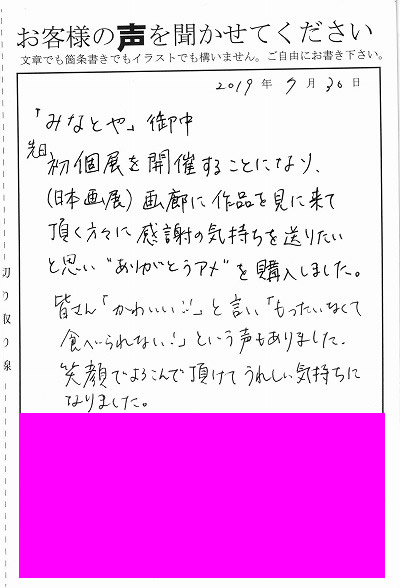 お客様の声を聞かせてください
文章でも箇条書きでもイラストでも構いません。ご自由にお書き下さい。
2019年 9月 30日
「みなとや」御中
先日
初個展を開催することになり、
(日本画展) 画廊に作品を見に来て
頂く方々に感謝の気持ちを送りたい
と思い"ありがとうアメ"を購入しました。
皆さん「かわいい!!」と言い「もったいなくて
食べられない!」という声もありました。
笑顔でよろこんで頂けてうれしい気持ちに
なりました。
切り取り線